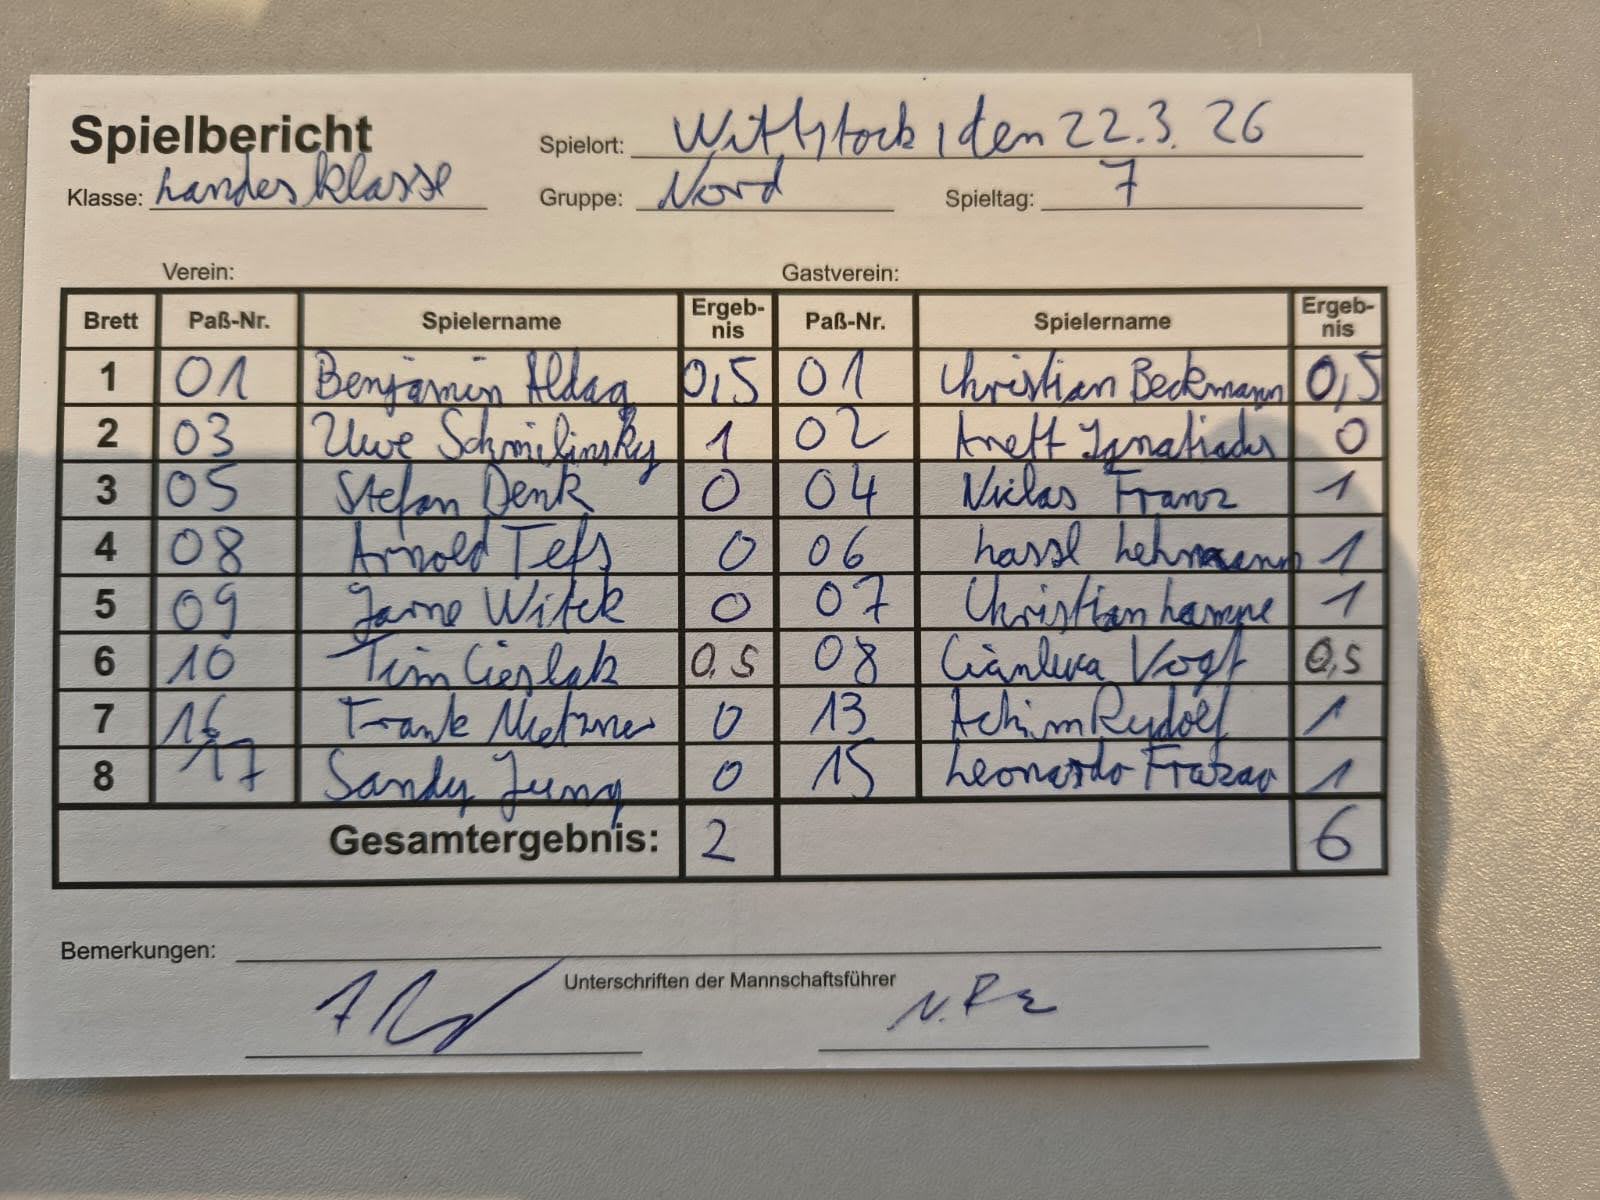 Spielbericht
Spielort: Wittstock, den 22.3.26
Klasse: Landesklasse Gruppe: Nord Spieltag: 7
Verein: Gastverein:
Brett Paß-Nr. Spielername Ergeb-nis Paß-Nr. Spielername Ergeb-nis
1 01 Benjamin Aldag 0,5 01 Christian Beckmann 0,5
2 03 Uwe Schmilinsky 1 02 Anett 0
3 05 Stefan Denk 0 04 Niclas Franz 1
4 08 Arnold Tefs 0 06 Lehmann 1
5 09 Jarne Witek 0 07 Christian Lampe 1
6 10 Tim Cieslak 0,5 08 Gianluca Vogt 0,5
7 16 Frank Metzner 0 13 Achim Rudolf 1
8 17 Sandy Jung 0 15 Leonardo 1
Gesamtergebnis: 2 6
Bemerkungen:
Unterschriften der Mannschaftsführer